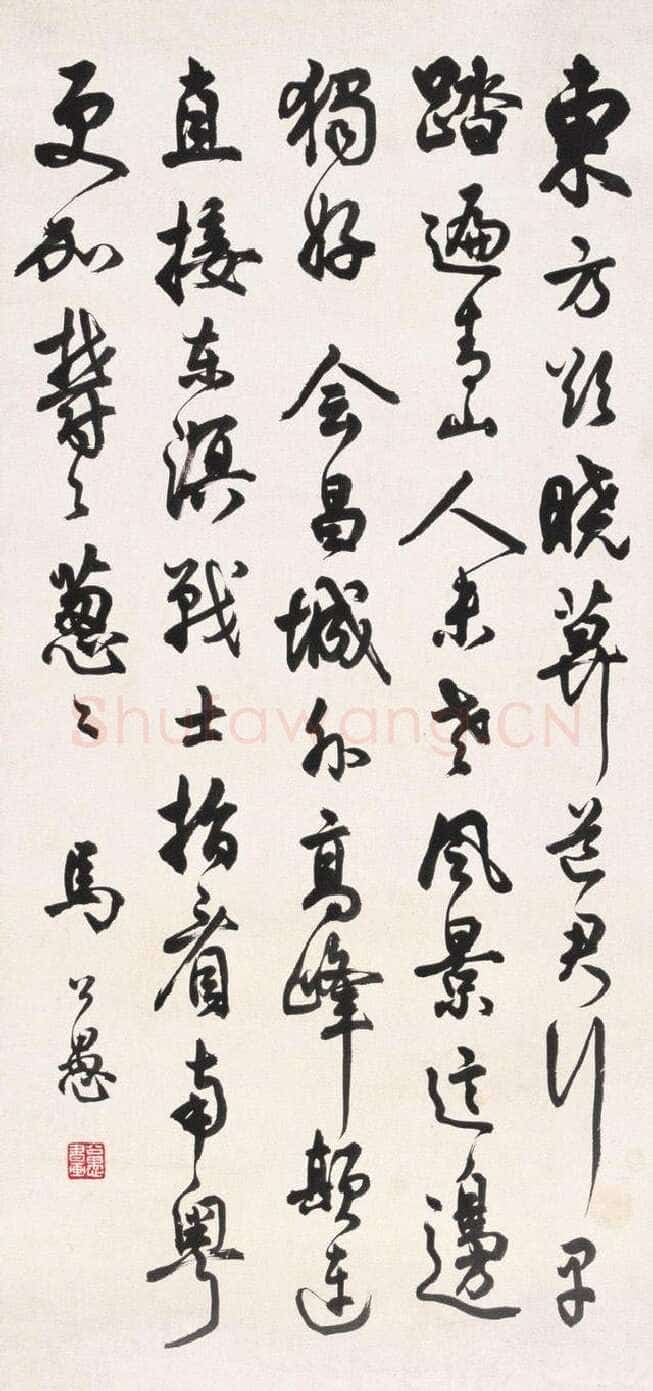 東方欲晓莫道君行早
踏遍青山人未老风景這邊
獨好 会昌城外高峰顛連
直接东溟戰士指看南粵
更加欝々蔥々 馬公愚
公愚書畫
Shufawang.CN